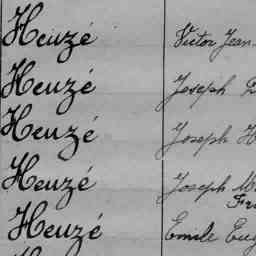 Heuzé Victor Jean
Heuzé Joseph
Heuzé Joseph
Heuzé Joseph
Heuzé Emile